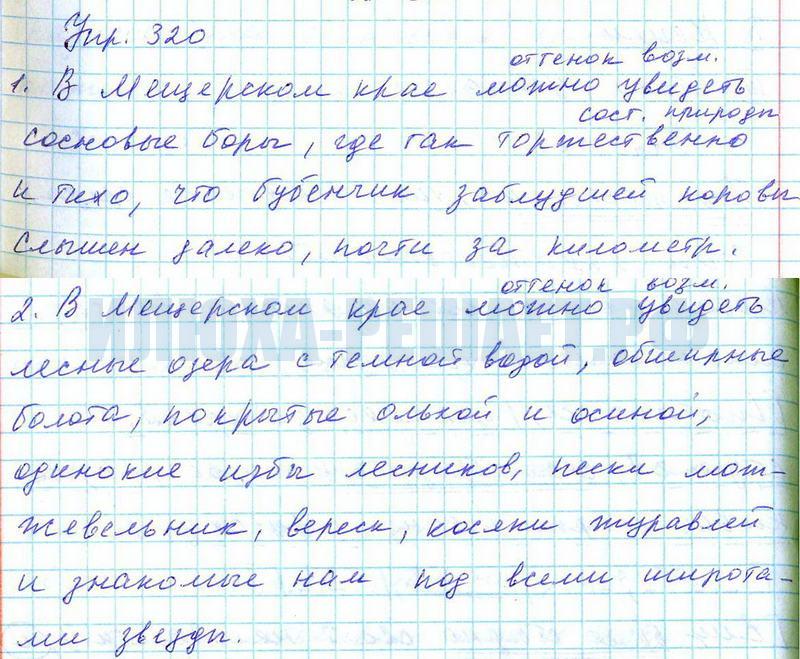 Упр. 320
оттенок возм.
1. В Мещерском крае можно увидеть
сост. природы
сосновые боры, где так торжественно
и тихо, что бубенчик заблудшей коровы
слышен далеко, почти за километр.
оттенок возм.
2. В Мещерском крае можно увидеть
лесные озера с темной водой, обширные
болота, покрытые ольхой и осиной,
одинокие избы лесников, пески мож-
жевельник, вереск, косяки журавлей
и знакомые нам под всеми широта-
ми звезды.
ИЛЮХА-РЕШАЕТ.РФ